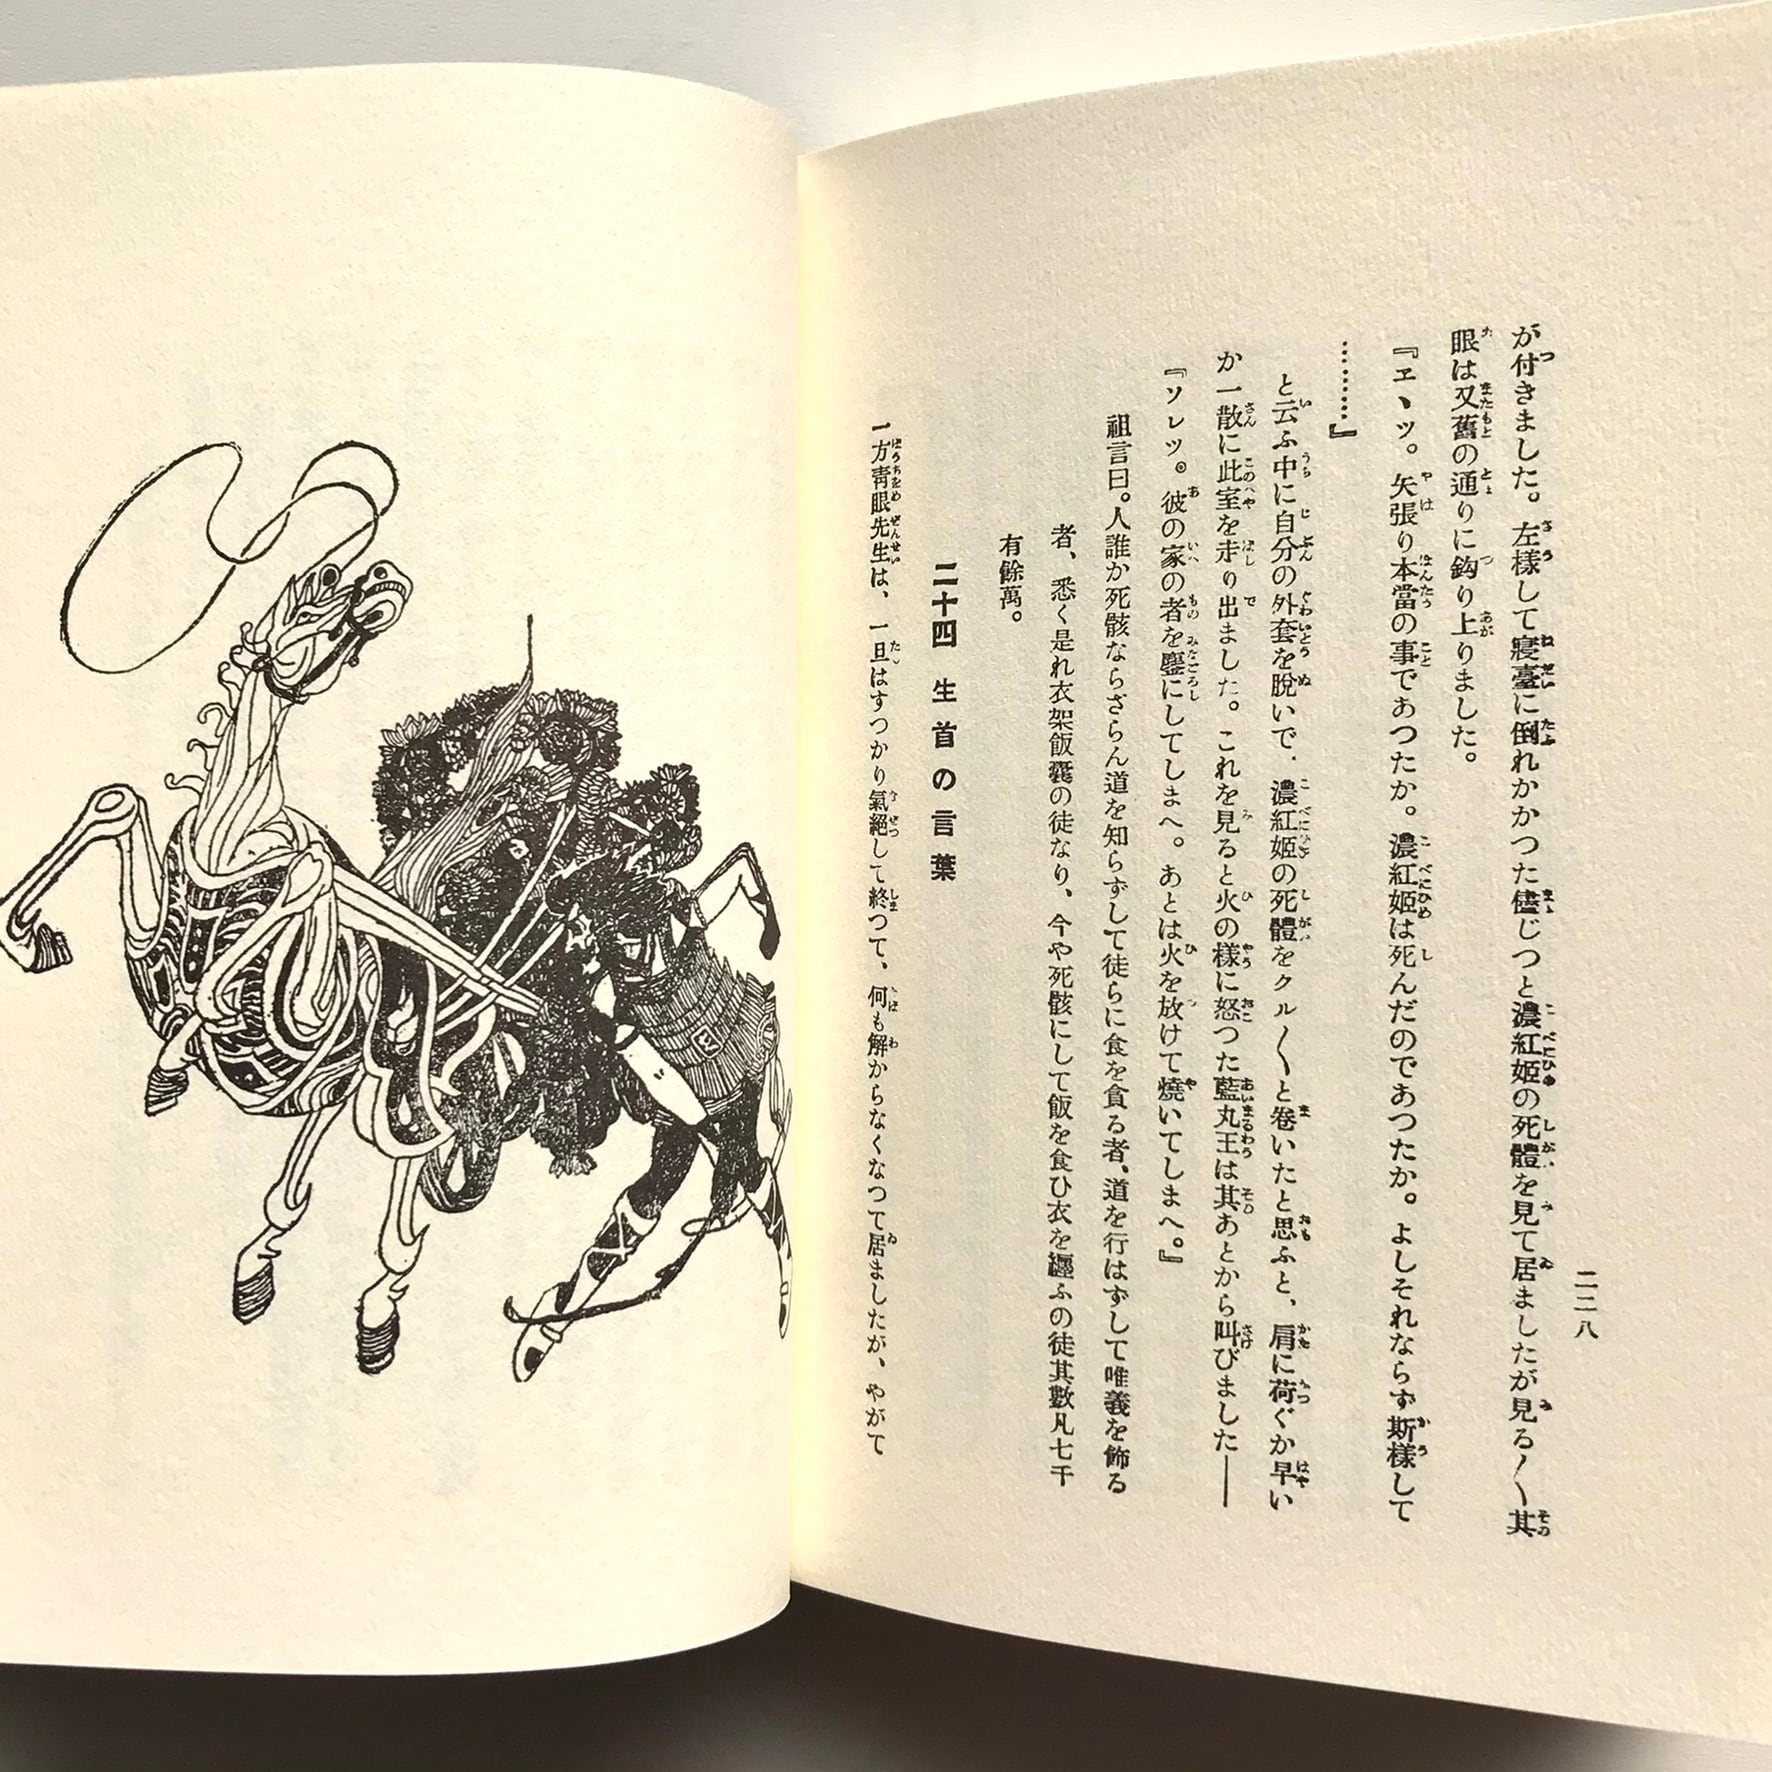 二二八
が付きました。左樣して寢臺に倒れかかつた儘じつと濃紅姬の死體を見て居ましたが見る〳〵其
眼は又舊の通りに鈎り上りました。
『エヽッ。矢張り本當の事であつたか。濃紅姬は死んだのであつたか。よしそれならず斯樣して
………』
と云ふ中に自分の外套を脫いで、濃紅姬の死體をクル〳〵と卷いたと思ふと、肩に荷ぐか早い
か一散に此室を走り出ました。これを見ると火の樣に怒つた藍丸王は其あとから叫びました――
『ソレッ。彼の家の者を鏖にしてしまへ。あとは火を放けて燒いてしまへ。』
祖言曰。人誰か死骸ならざらん道を知らずして徒らに食を貪る者、道を行はずして唯義を飾る
者、悉く是れ衣架飯囊の徒なり、今や死骸にして飯を食ひ衣を纒ふの徒其數凡七千
有餘萬。
二十四 生首の言葉
一方靑眼先生は、一旦はすつかり氣絕して終つて、何も解からなくなつて居ましたが、やがて